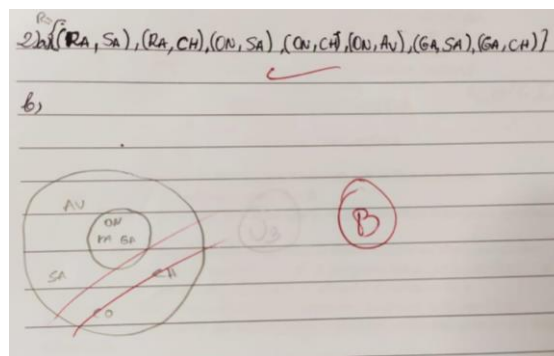 R=
2)a){(RA, SA), (RA, CH), (ON, SA), (ON, CH), (ON, AV), (GA, SA), (GA, CH)}
b)
AV
ON
RA GA
SA
CH
CO
B